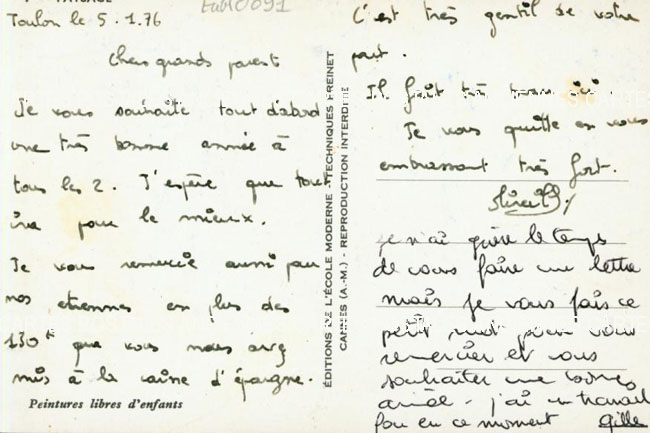 Toulon le 5.1.76
Chers grands parent
Je vous souhaite tout d'abord
une très bonne année à
tous les 2. J'espère que tout
ira pour le mieux.
Je vous remercie aussi pour
nos etiennes en plus des
130F que vous nous avez
mis à la caisse d'épargne.
Peintures libres d'enfants
ÉDITIONS DE L'ÉCOLE MODERNE - TECHNIQUES FREINET
CANNES (A.-M.) - REPRODUCTION INTERDITE
C'est très gentil de votre
part.
Il fait très beau ici
Je vous quitte en vous
embrassant très fort.
je n'ai guère le temps
de vous faire une lettre
mais je vous fais ce
petit mot pour vous
remercier et vous
souhaiter une bonne
année - j'ai un travail
fou en ce moment Gille